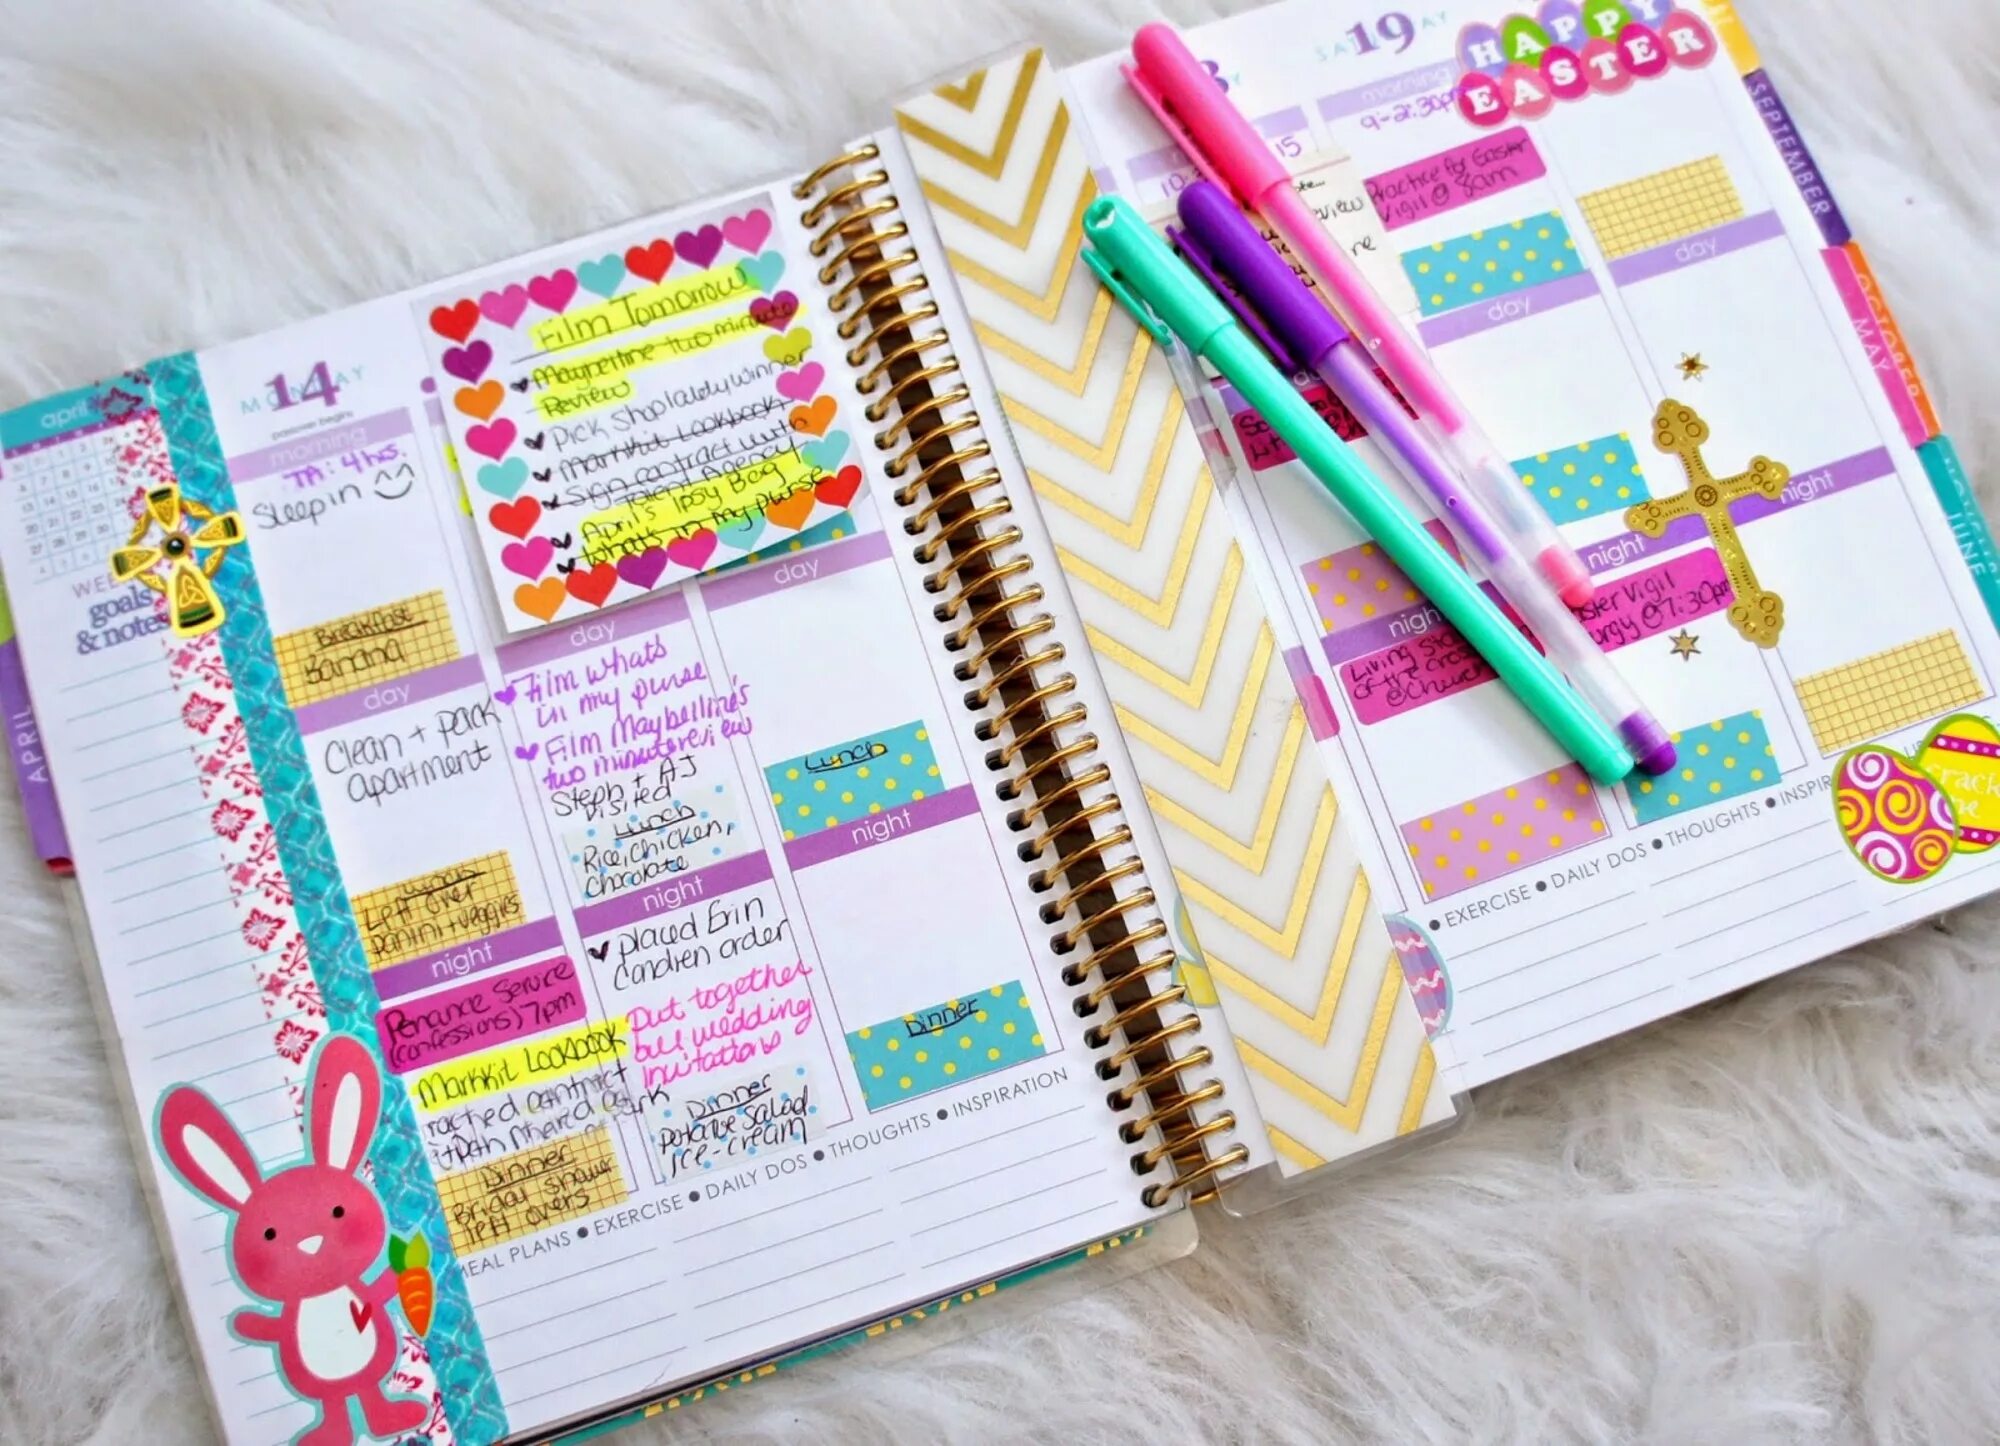 april
WEEKLY
goals
& notes
APRIL
14
MONDAY
passover begins
morning
TA: 4 hrs.
Sleep in
Breakfast
Banana
day
Clean + pack
apartment
Lunch
Left over
panini + veggies
night
Penance Service
(confessions) 7pm
Markkit Lookbook
Dinner
Bridal shower
left overs
MEAL PLANS • EXERCISE • DAILY DOS • THOUGHTS • INSPIRATION
Film Tomorrow
Maybelline two minute
Review
Pick Shoplately winner
Markkit Lookbook
Sign contract with
Talent Agency
April's Ipsy Bag
What's in my purse
day
Film whats
in my purse
Film Maybelline's
two minute review
Steph + AJ
visited
Lunch
Rice, chicken,
chocolate
night
placed Erin
Condren order
Put together
our wedding
invitations
Dinner
potatoe salad
ice-cream
day
Lunch
night
Dinner
19
SATURDAY
HAPPY
EASTER
morning
9-2:30pm
Practice for Easter
Vigil @ 8am
day
day
night
Living Sta
of the cross
@ church
night
Easter Vigil
@ 7:30pm
night
• EXERCISE • DAILY DOS • THOUGHTS •
SEPTEMBER
OCTOBER
MAY
JUNE